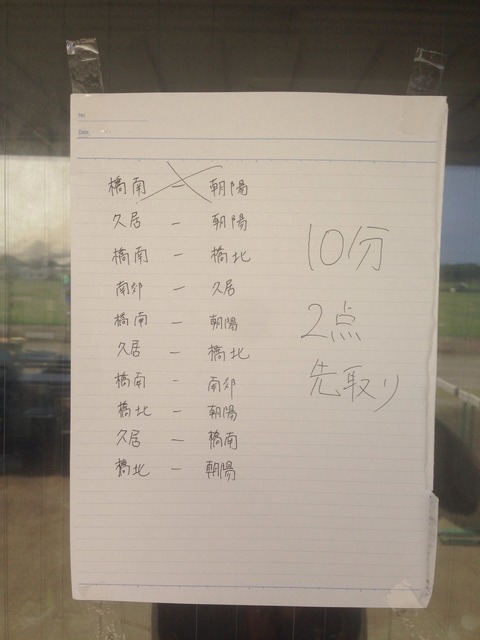 No.
Date
橋南 - 朝陽
久居 - 朝陽
橋南 - 橋北
南郊 - 久居
橋南 - 朝陽
久居 - 橋北
橋南 - 南郊
橋北 - 朝陽
久居 - 橋南
橋北 - 朝陽
10分
2点
先取り